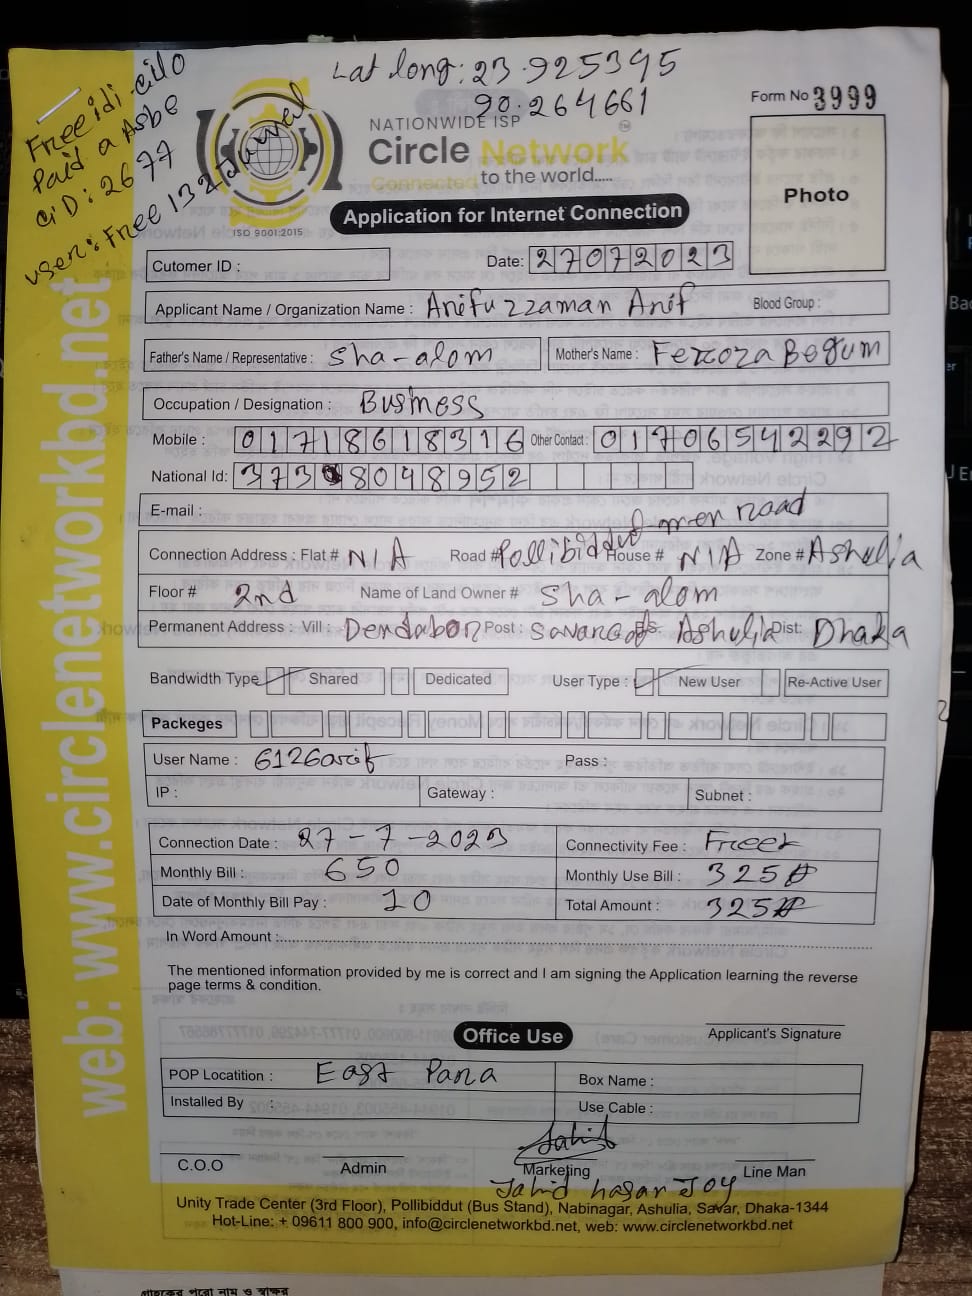 Lat long: 23.925395
90.264661
Free idi
Paid a
CiD: 2677
user: Free 132
Form No 3999
NATIONWIDE ISP
Circle Network
TM
Connected to the world.....
ISO 9001:2015
Photo
Application for Internet Connection
Cutomer ID :
Date: 27072023
Applicant Name / Organization Name : Arifuzzaman Arif Blood Group :
Father's Name / Representative : Sha-alom Mother's Name : Feroza Begum
Occupation / Designation : Business
Mobile : 01718618316 Other Contact : 01706542292
National Id: 373 8048952
E-mail :
Connection Address : Flat # N/A Road # Pollibiddut mer road House # N/A Zone # Ashulia
Floor # 2nd Name of Land Owner # Sha-alom
Permanent Address : Vill : Dendabor Post : Savar P.s. Ashulia Dist: Dhaka
Bandwidth Type Shared Dedicated User Type : New User Re-Active User
Packeges
User Name : 6126arif Pass :
IP : Gateway : Subnet :
Connection Date : 27-7-2023 Connectivity Fee : Free
Monthly Bill : 650 Monthly Use Bill : 325
Date of Monthly Bill Pay : 10 Total Amount : 325
In Word Amount :
The mentioned information provided by me is correct and I am signing the Application learning the reverse
page terms & condition.
Applicant's Signature
Office Use
POP Locatition : East Para Box Name :
Installed By : Use Cable :
Jahid
C.O.O Admin Marketing Line Man
Jahid hasan Joy
Unity Trade Center (3rd Floor), Pollibiddut (Bus Stand), Nabinagar, Ashulia, Savar, Dhaka-1344
Hot-Line: + 09611 800 900, info@circlenetworkbd.net, web: www.circlenetworkbd.net
web: www.circlenetworkbd.net
গ্রাহকের পুরো নাম ও স্বাক্ষর